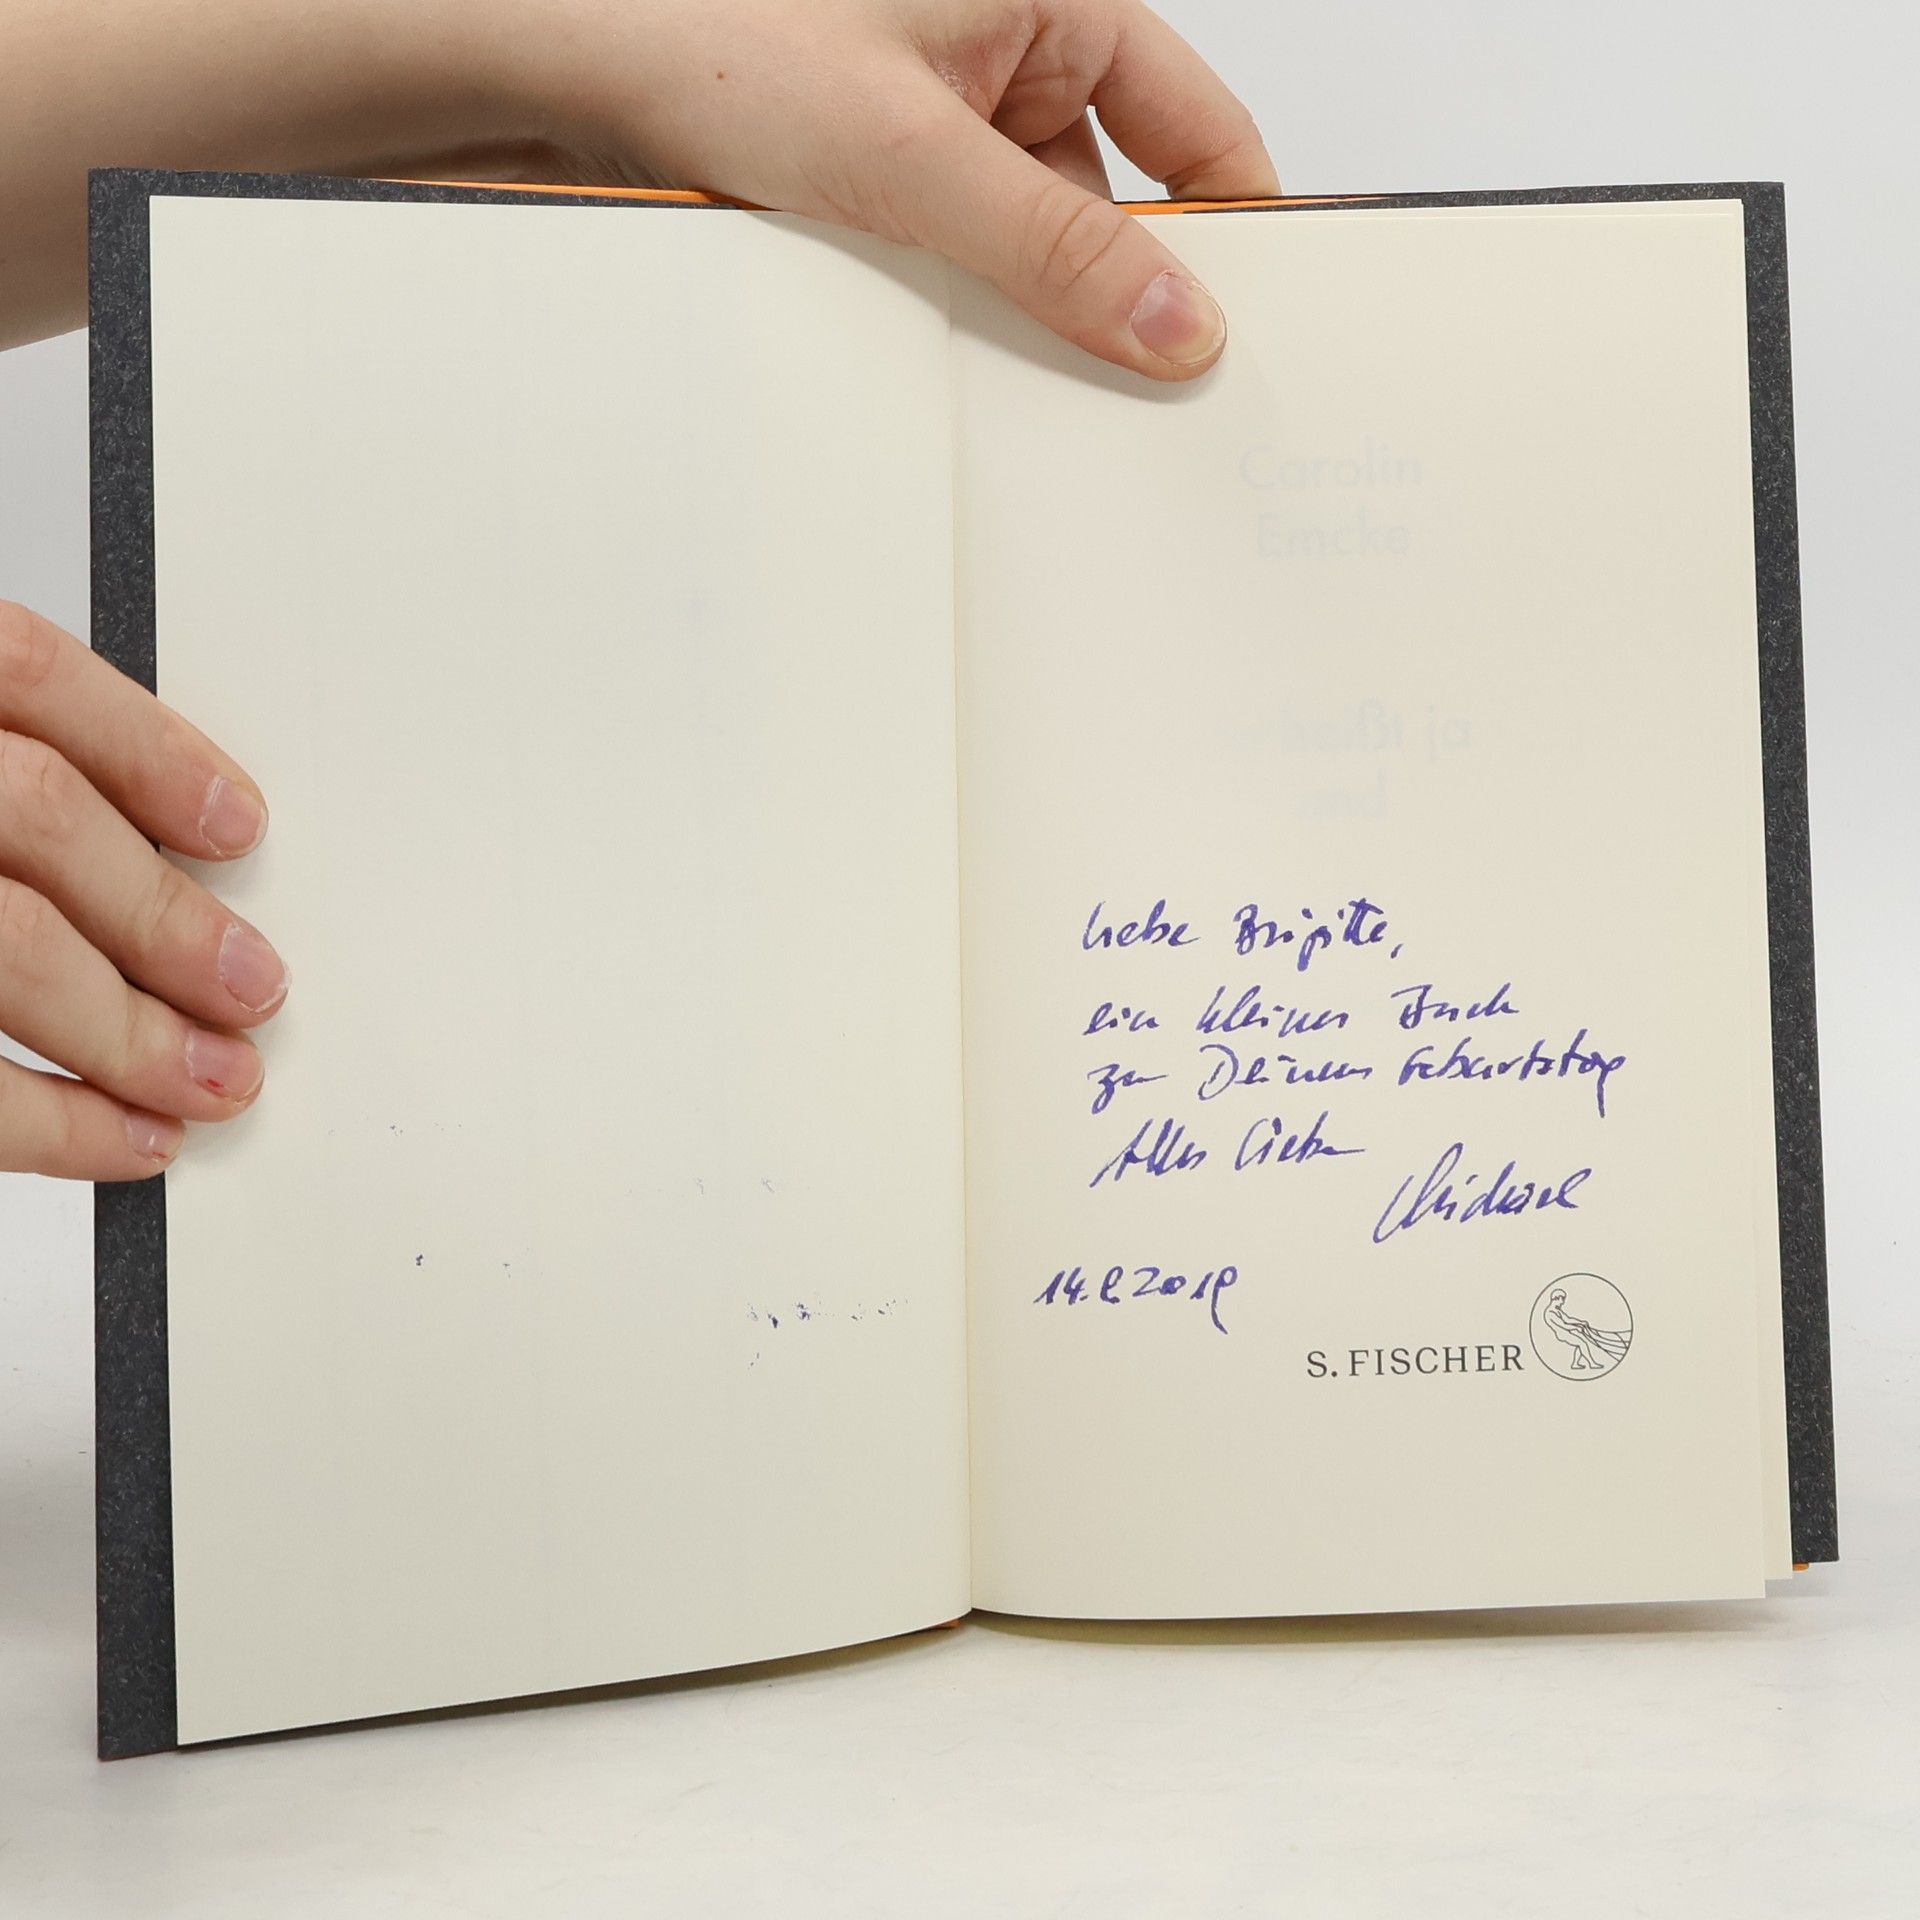 Carolin
Emcke
heißt ja
und
Liebe Brigitte,
ein kleines Buch
zu Deinem Geburtstag
Alles Liebe
Michael
14.8.2019
S. FISCHER